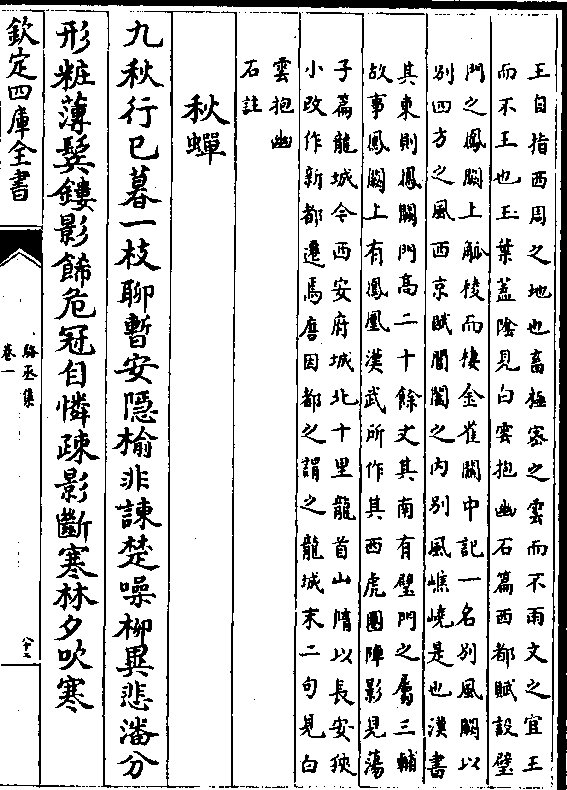 王自指西周之地也畜極宻之雲而不雨文之宜王
而不王也玉葉蓋隂見白雲抱幽石篇西都賦設璧
門之鳳闕上觚稜而棲金雀關中記一名别風闕以
别四方之風西京賦閶闔之内别風嶕嶢是也漢書
其東則鳳闕門髙二十餘丈其南有璧門之屬三輔
故事鳳闕上有鳳凰漢武所作其西虎圏陣影見蕩
子篇龍城今西安府城北十里龍首山隋以長安狹
小改作新都遷焉唐因都之謂之龍城末二句見白
雲抱幽
石註
秋蟬
九秋行已暮一枝聊暫安隠榆非諫楚噪柳異悲潘分
形粧薄鬂鏤影餙危冠自憐疎影斷寒林夕吹寒
欽定四庫全書
駱丞集
卷一